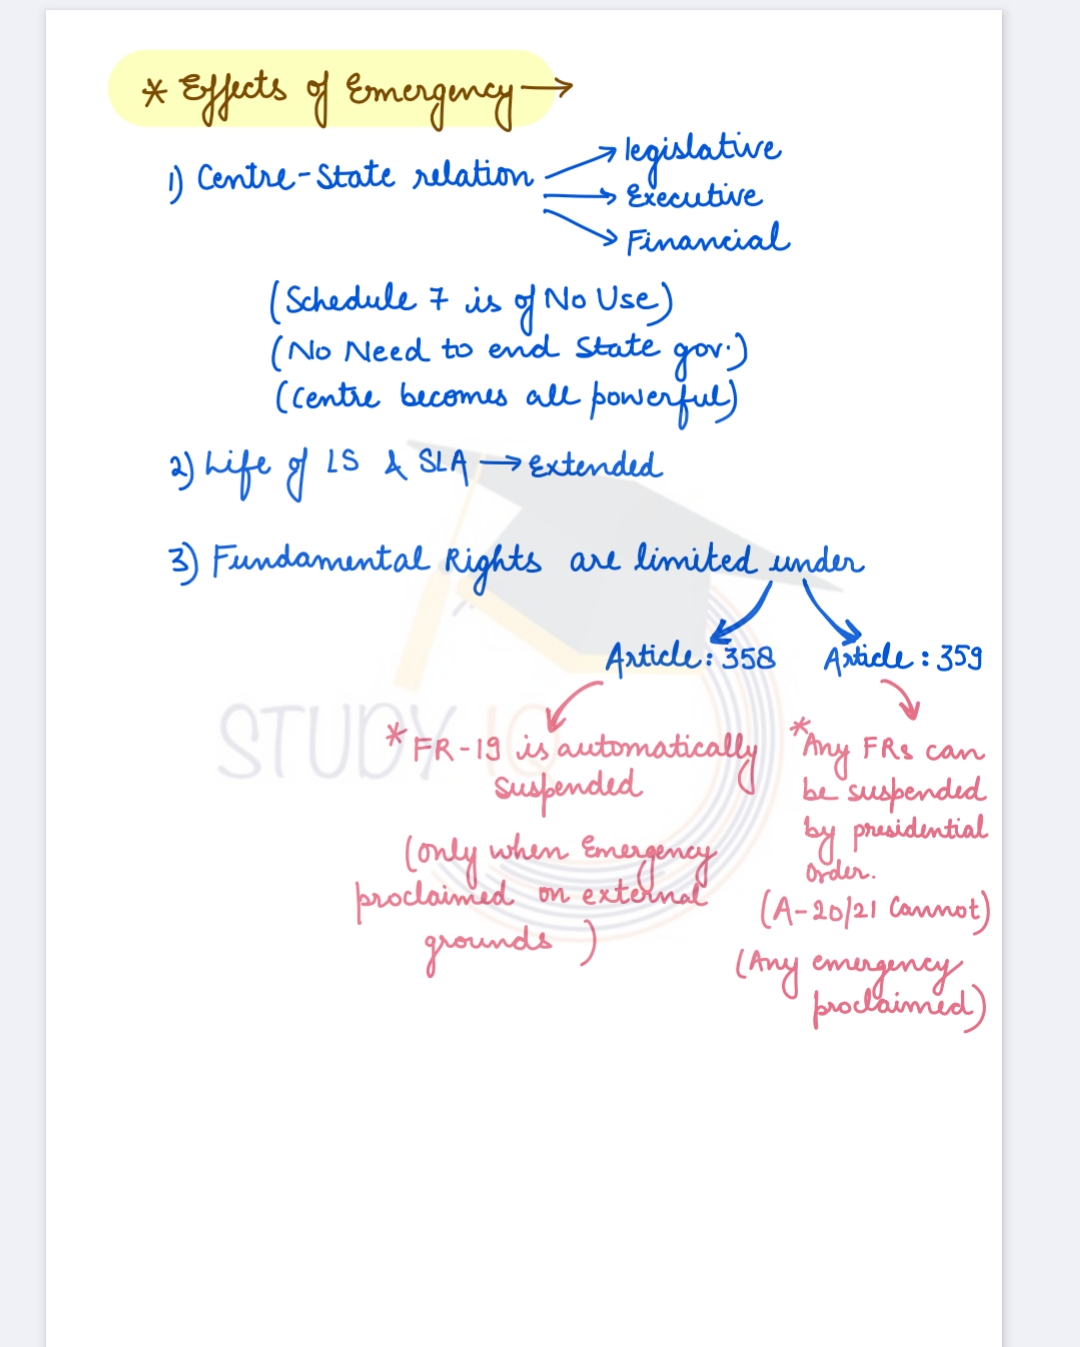 * Effects of Emergency →
1) Centre-State relation → legislative
→ Executive
→ Financial
(Schedule 7 is of No Use)
(No Need to end State gov.)
(Centre becomes all powerful)
2) Life of LS & SLA → Extended
3) Fundamental Rights are limited under
Article: 358
Article: 359
* FR-19 is automatically
suspended
(only when Emergency
proclaimed on external
grounds)
* Any FRs can
be suspended
by presidential
order.
(A-20/21 Cannot)
(Any emergency
proclaimed)
STUDY IQ